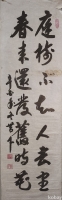 庭樹不知人去盡
春來還發舊時花